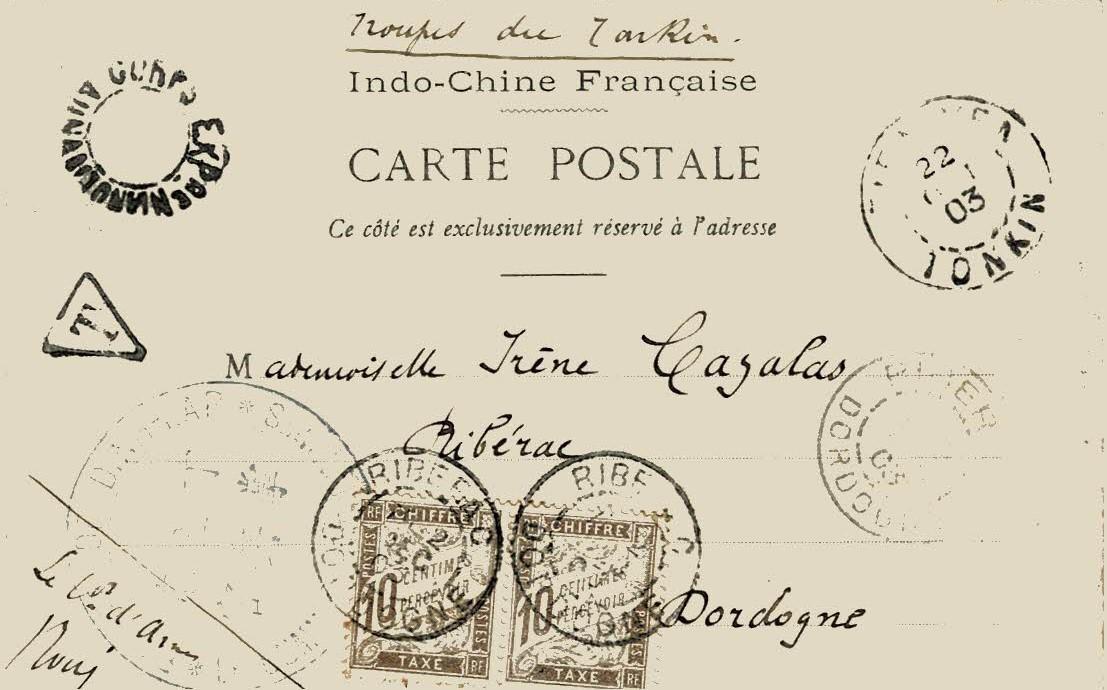 Troupes du Tonkin.
Indo-Chine Française
CARTE POSTALE
Ce côté est exclusivement réservé à l'adresse
CORPS EXP
22
03
TONKIN
T
Mademoiselle Irène Cazalas
Ribérac
Dordogne
RIBERAC
RIBE
DORDOGNE
03
RF CHIFFRE
POSTES
10 CENTIMES
À
PERCEVOIR
TAXE RF
CHIFFRE
10 CENTIMES
À
PERCEVOIR
TAXE RF
Le
d'armes